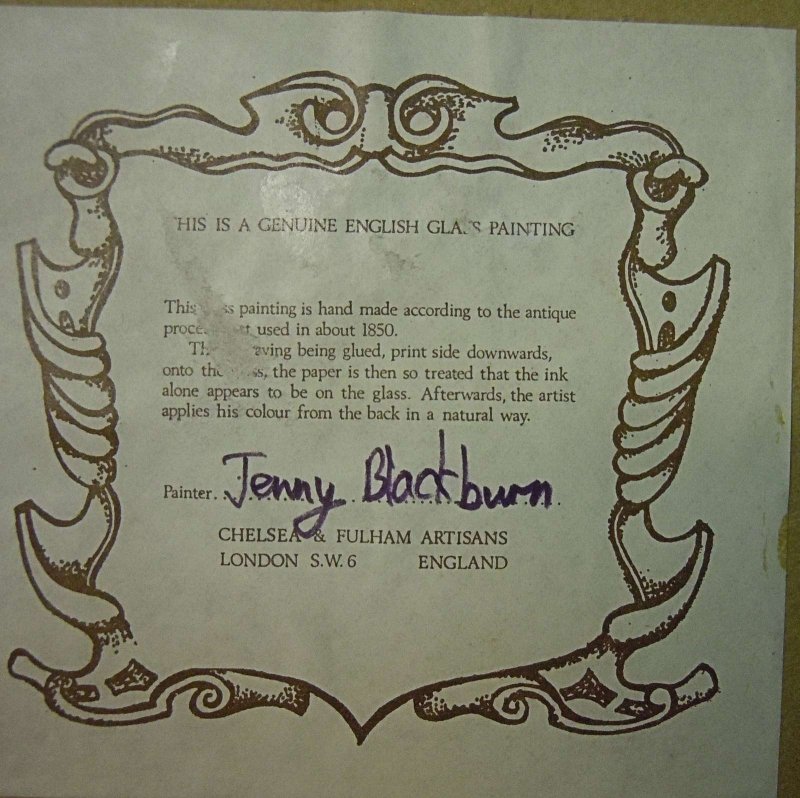 THIS IS A GENUINE ENGLISH GLASS PAINTING
This glass painting is hand made according to the antique
used in about 1850.
being glued, print side downwards,
onto the glass, the paper is then so treated that the ink
alone appears to be on the glass. Afterwards, the artist
applies his colour from the back in a natural way.
Painter. Jenny Blackburn
CHELSEA & FULHAM ARTISANS
LONDON S.W.6 ENGLAND